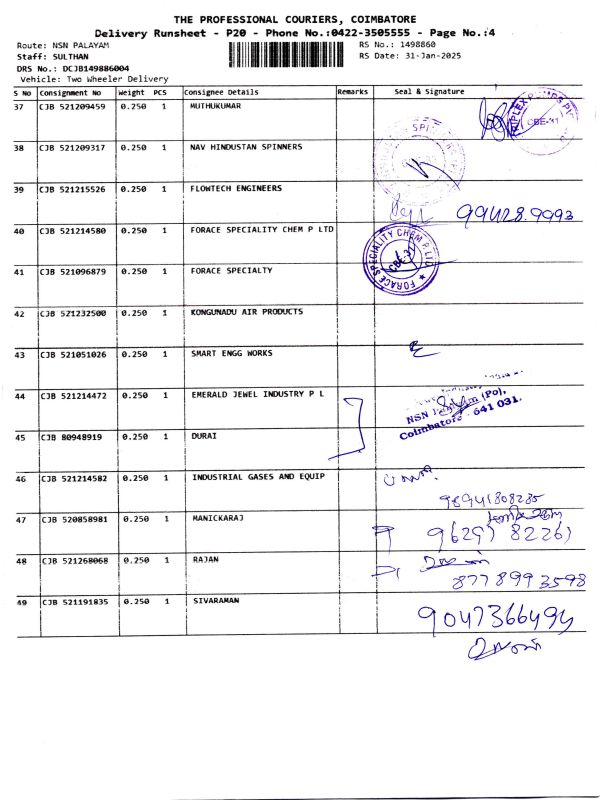 THE PROFESSIONAL COURIERS, COIMBATORE
Delivery Runsheet - P20 - Phone No.:0422-3505555 - Page No.:4
Route: NSN PALAYAM RS No.: 1498860
Staff: SULTHAN RS Date: 31-Jan-2025
DRS No.: DCJB149886004
Vehicle: Two Wheeler Delivery
S No Consignment No Weight PCS Consignee Details Remarks Seal & Signature
37 CJB 521209459 0.250 1 MUTHUKUMAR
CBE-31
38 CJB 521209317 0.250 1 NAV HINDUSTAN SPINNERS
39 CJB 521215526 0.250 1 FLOWTECH ENGINEERS
99428.9993
40 CJB 521214580 0.250 1 FORACE SPECIALITY CHEM P LTD
FORACE SPECIALITY CHEM P. LTD. CBE-31
41 CJB 521096879 0.250 1 FORACE SPECIALTY
42 CJB 521232500 0.250 1 KONGUNADU AIR PRODUCTS
43 CJB 521051026 0.250 1 SMART ENGG WORKS
44 CJB 521214472 0.250 1 EMERALD JEWEL INDUSTRY P L
NSN (Po),
Coimbatore - 641 031.
45 CJB 80948919 0.250 1 DURAI
46 CJB 521214582 0.250 1 INDUSTRIAL GASES AND EQUIP
98941808285
47 CJB 520858981 0.250 1 MANICKARAJ
9629782261
48 CJB 521268068 0.250 1 RAJAN
8778993598
49 CJB 521191835 0.250 1 SIVARAMAN
9047366494